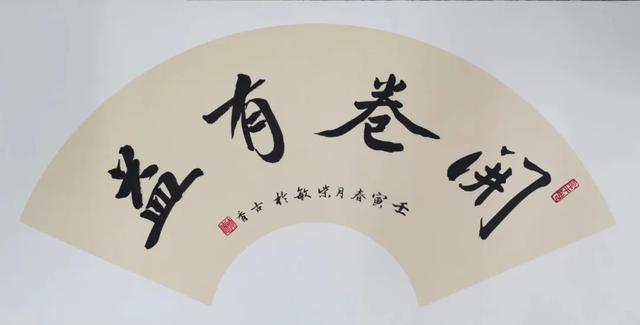 开卷有益
壬寅春月崇敏於古青